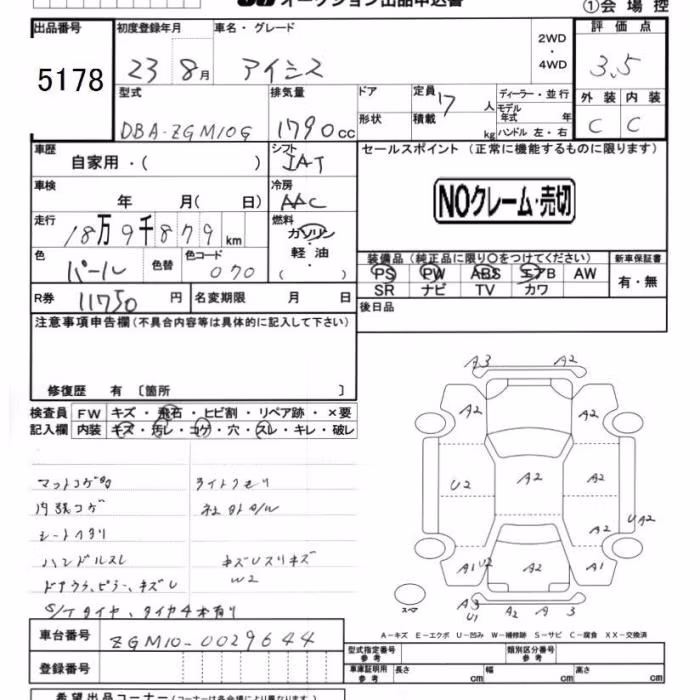 オークション出品申込書
①会場控
出品番号 5178
初度登録年月 23年 8月
車名・グレード アイシス
2WD・4WD
評価点 3.5
外装 C 内装 C
型式 DBA-ZGM10G
排気量 1790cc
ドア
形状
定員 7人
積載 kg
ディーラー・並行
モデル年式 年
ハンドル 左・右
車歴 自家用・( )
シフト IAT
セールスポイント (正常に機能するものに限ります)
NOクレーム・売切
車検 年 月( 日)
冷房 AAC
走行 18万9千879km
燃料 ガソリン・軽油( )
色 パール
色替
色コード 070
装備品 (純正品に限り○をつけてください)
PS PW ABS エアB AW
SR ナビ TV カワ
新車保証書 有・無
R券 11750円
名変期限 月 日
後日品
注意事項申告欄 (不具合内容等は具体的に記入して下さい)
修復歴 有 〔箇所 〕
検査員記入欄
FW キズ・飛石・ヒビ割・リペア跡・×要
内装 キズ・汚レ・コゲ・穴・スレ・キレ・破レ
マットコゲ穴
ライトクモリ
内張コゲ
社外A/W
シートヘタリ
ハンドルスレ
キズUスリキズ
W2
ドアウラ、ピラー、キズU
S/Tタイヤ、タイヤ4本有り
A3 A2
A2 A2
U2 A2 A2
A2 UA2
A1 U2 A2 A1
スペア
A3 U1 A2 A 3
A-キズ E-エクボ U-凹み W-補修跡 S-サビ C-腐食 XX-交換済
車台番号 ZGM10-0029644
型式指定番号 参考
類別区分番号 参考
登録番号
車庫証明用 参考 長さ cm 幅 cm 高さ cm
希望出品コーナー (コーナーは各会場により異なります)